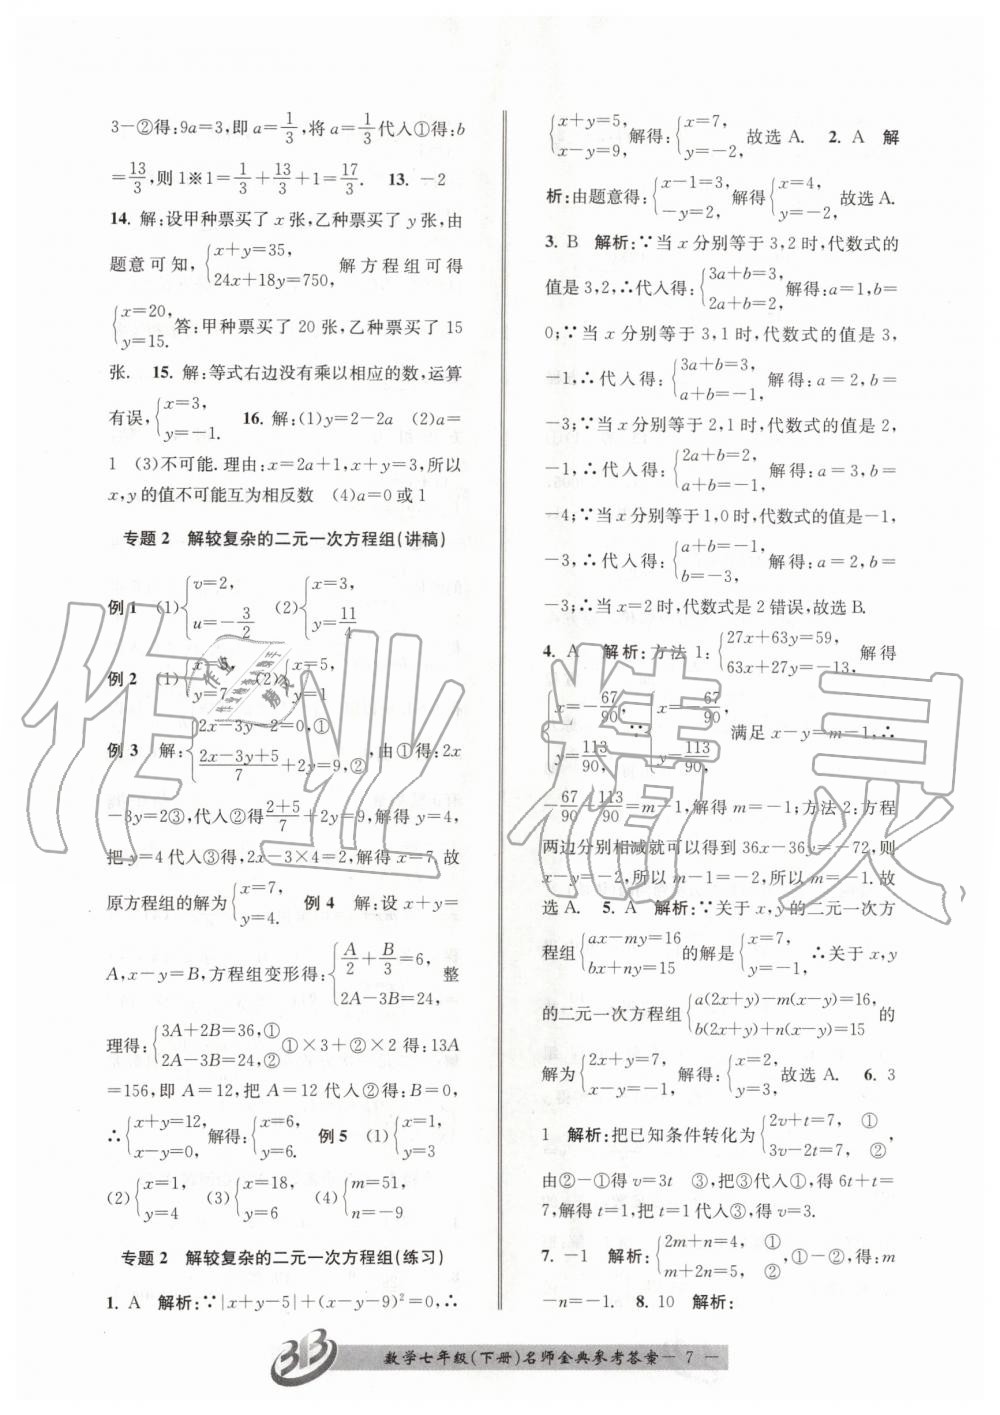 3－②得:9a＝3,即 a＝1/3,将 a＝1/3代入①得:b
＝13/3,则 1※1＝1/3＋13/3＋1＝17/3. 13. －2
14. 解:设甲种票买了 x 张,乙种票买了 y 张,由
题意可知,{x＋y＝35, 24x＋18y＝750, 解方程组可得
{x＝20, y＝15. 答:甲种票买了 20 张,乙种票买了 15
张. 15. 解:等式右边没有乘以相应的数,运算
有误,{x＝3, y＝－1. 16. 解:(1)y＝2－2a (2)a＝
1 (3)不可能. 理由:x＝2a＋1,x＋y＝3,所以
x,y 的值不可能互为相反数 (4)a＝0 或 1
专题 2 解较复杂的二元一次方程组(讲稿)
例 1 (1){v＝2, u＝－3/2 (2){x＝3, y＝11/4
例 2 (1){ y＝7 (2){x＝5, y＝1
例 3 解:{2x－3y－2＝0,① (2x－3y＋5)/7＋2y＝9,② ,由①得:2x
－3y＝2③,代入②得(2＋5)/7＋2y＝9,解得 y＝4,
把 y＝4 代入③得,2x－3×4＝2,解得 x＝7. 故
原方程组的解为{x＝7, y＝4. 例 4 解:设 x＋y＝
A,x－y＝B,方程组变形得:{A/2＋B/3＝6, 2A－3B＝24, 整
理得:{3A＋2B＝36,① 2A－3B＝24,② ①×3＋②×2 得:13A
＝156,即 A＝12,把 A＝12 代入②得:B＝0,
∴{x＋y＝12, x－y＝0, 解得:{x＝6, y＝6. 例 5 (1){x＝1, y＝1
(2){x＝1, y＝4 (3){x＝18, y＝6 (4){m＝51, n＝－9
专题 2 解较复杂的二元一次方程组(练习)
1. A 解析:∵|x＋y－5|＋(x－y－9)²＝0,∴
{x＋y＝5, x－y＝9, 解得:{x＝7, y＝－2, 故选 A. 2. A 解
析:由题意得:{x－1＝3, －y＝2, 解得{x＝4, y＝－2, 故选 A.
3. B 解析:∵当 x 分别等于 3,2 时,代数式的
值是 3,2,∴代入得:{3a＋b＝3, 2a＋b＝2, 解得:a＝1,b＝
0;∵当 x 分别等于 3,1 时,代数式的值是 3,
－1,∴代入得:{3a＋b＝3, a＋b＝－1, 解得:a＝2,b＝
－3;∵当 x 分别等于 2,1 时,代数式的值是 2,
－1,∴代入得:{2a＋b＝2, a＋b＝－1, 解得:a＝3,b＝
－4;∵当 x 分别等于 1,0 时,代数式的值是－1,
－3,∴代入得:{a＋b＝－1, b＝－3, 解得:a＝2,b＝
－3;∴当 x＝2 时,代数式是 2 错误,故选 B.
4. A 解析:方法 1:{27x＋63y＝59, 63x＋27y＝－13, 解得
{x＝－67/90, y＝113/90, ∵{x＝－67/90, y＝113/90, 满足 x－y＝m－1,∴
－67/90－113/90＝m－1,解得 m＝－1;方法 2:方程
两边分别相减就可以得到 36x－36y＝－72,则
x－y＝－2,所以 m－1＝－2,所以 m＝－1. 故
选 A. 5. A 解析:∵关于 x,y 的二元一次方
程组{ax－my＝16 bx＋ny＝15 的解是{x＝7, y＝－1, ∴关于 x,y
的二元一次方程组{a(2x＋y)－m(x－y)＝16, b(2x＋y)＋n(x－y)＝15 的
解为{2x＋y＝7, x－y＝－1, 解得:{x＝2, y＝3, 故选 A. 6. 3
1 解析:把已知条件转化为{2v＋t＝7, ① 3v－2t＝7, ② ,
由②－①得 v＝3t ③,把③代入①,得 6t＋t＝
7,解得 t＝1,把 t＝1 代入③,得 v＝3.
7. －1 解析:{2m＋n＝4, ① m＋2n＝5, ② ,①－②得:m
－n＝－1. 8. 10 解析:
3B 数学七年级(下册)名师金典参考答案— 7 —
作业精灵